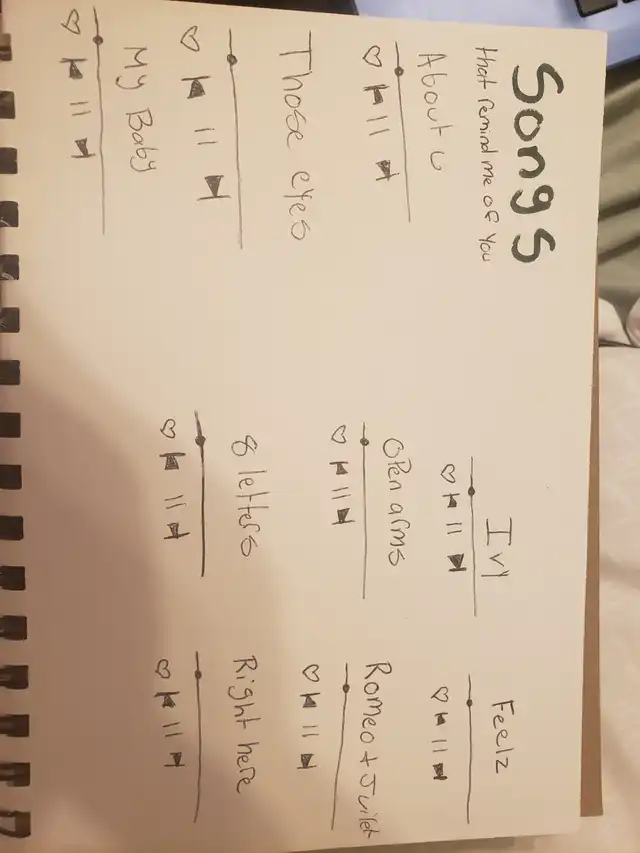 Songs
that remind me of you
About u
Those eyes
My Baby
Ivy
Open arms
8 letters
Feelz
Romeo + Juilet
Right here